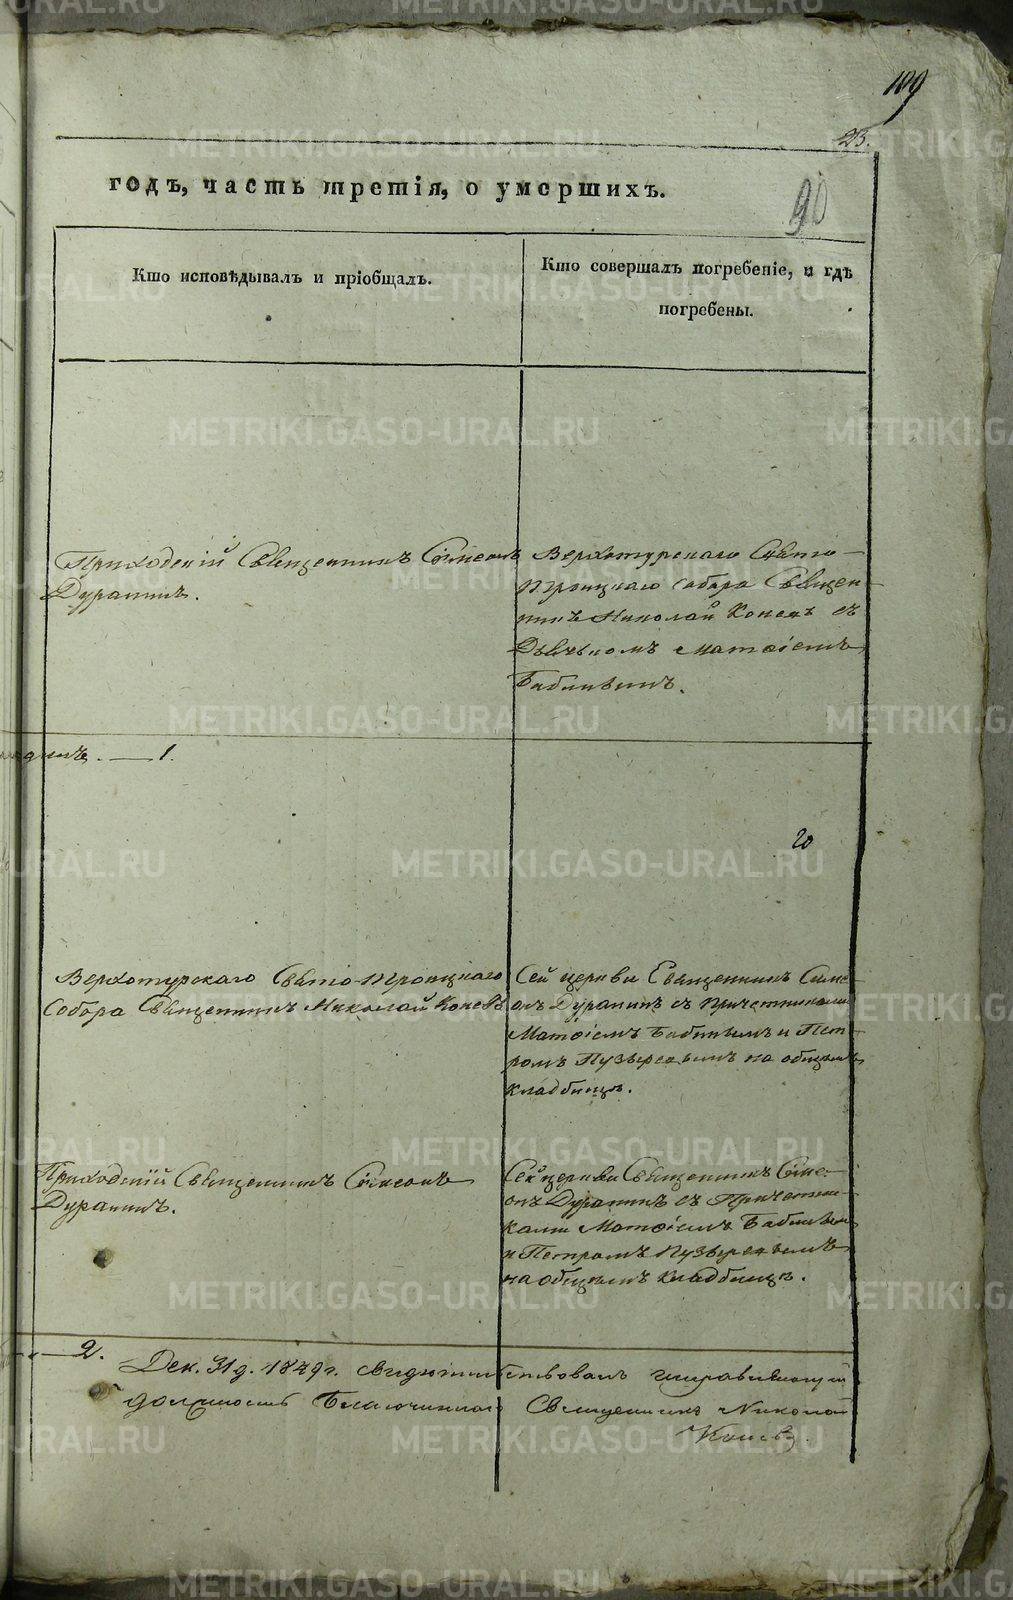 109
23.
годъ, часть третія, о умершихъ.
90
Кто исповѣдывалъ и пріобщалъ.
Кто совершалъ погребеніе, и гдѣ
погребены.
Приходскій Священникъ Симеонъ
Дуранинъ.
Верхотурскаго Свято-
Троицкаго Собора Священ-
никъ Николай Коневъ съ
Дьячкомъ Матѳіемъ
Бабинымъ.
1.
20
Верхотурскаго Свято-Троицкаго
Собора Священникъ Николай Коневъ
Сей церкви Священникъ Симе-
онъ Дуранинъ съ причетниками
Матѳіемъ Бабинымъ и Пет-
ромъ Пузыревымъ на общемъ
кладбищѣ.
Приходскій Священникъ Симеонъ
Дуранинъ.
Сей церкви Священникъ Симе-
онъ Дуранинъ съ Причетни-
ками Матѳіемъ Бабинымъ
и Петромъ Пузыревымъ
на общемъ кладбищѣ.
2.
Дек. 31 д. 1849 г. свидѣтельствовалъ исправляющій
должность Благочиннаго Священникъ Николай
Коневъ.
METRIKI.GASO-URAL.RU